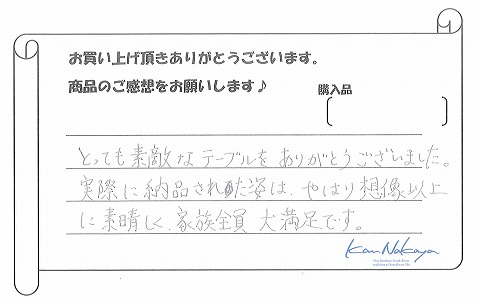 お買い上げ頂きありがとうございます。
商品のご感想をお願いします♪
購入品
とっても素敵なテーブルをありがとうございました。
実際に納品された姿は、やはり想像以上
に素晴しく、家族全員大満足です。
Kan Nakaya